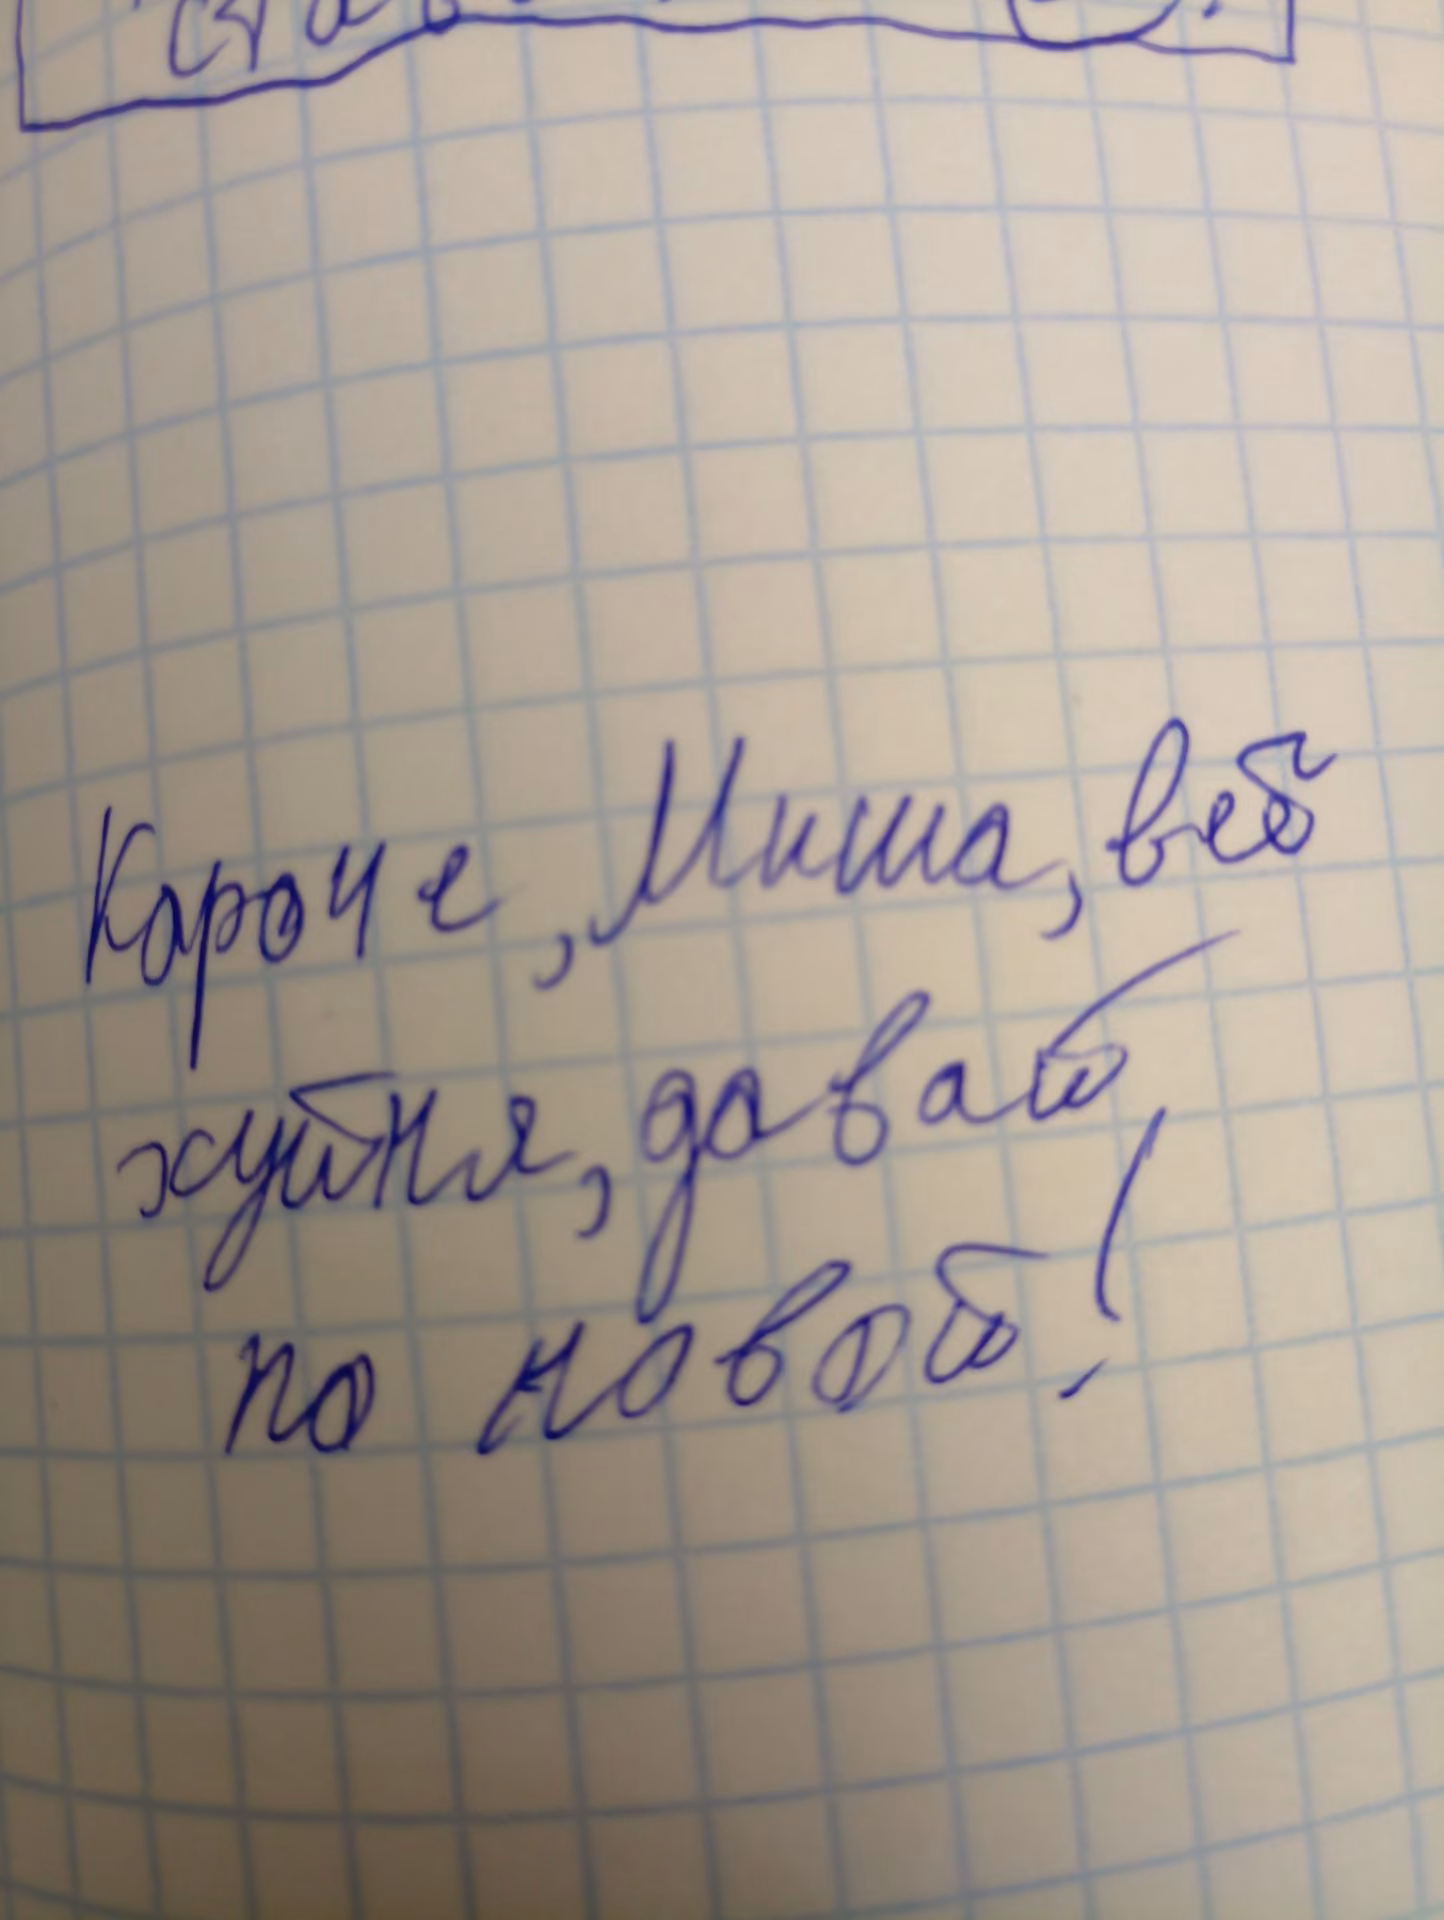 Кароче, Миша, веб
хуйня, давай,
по новой!